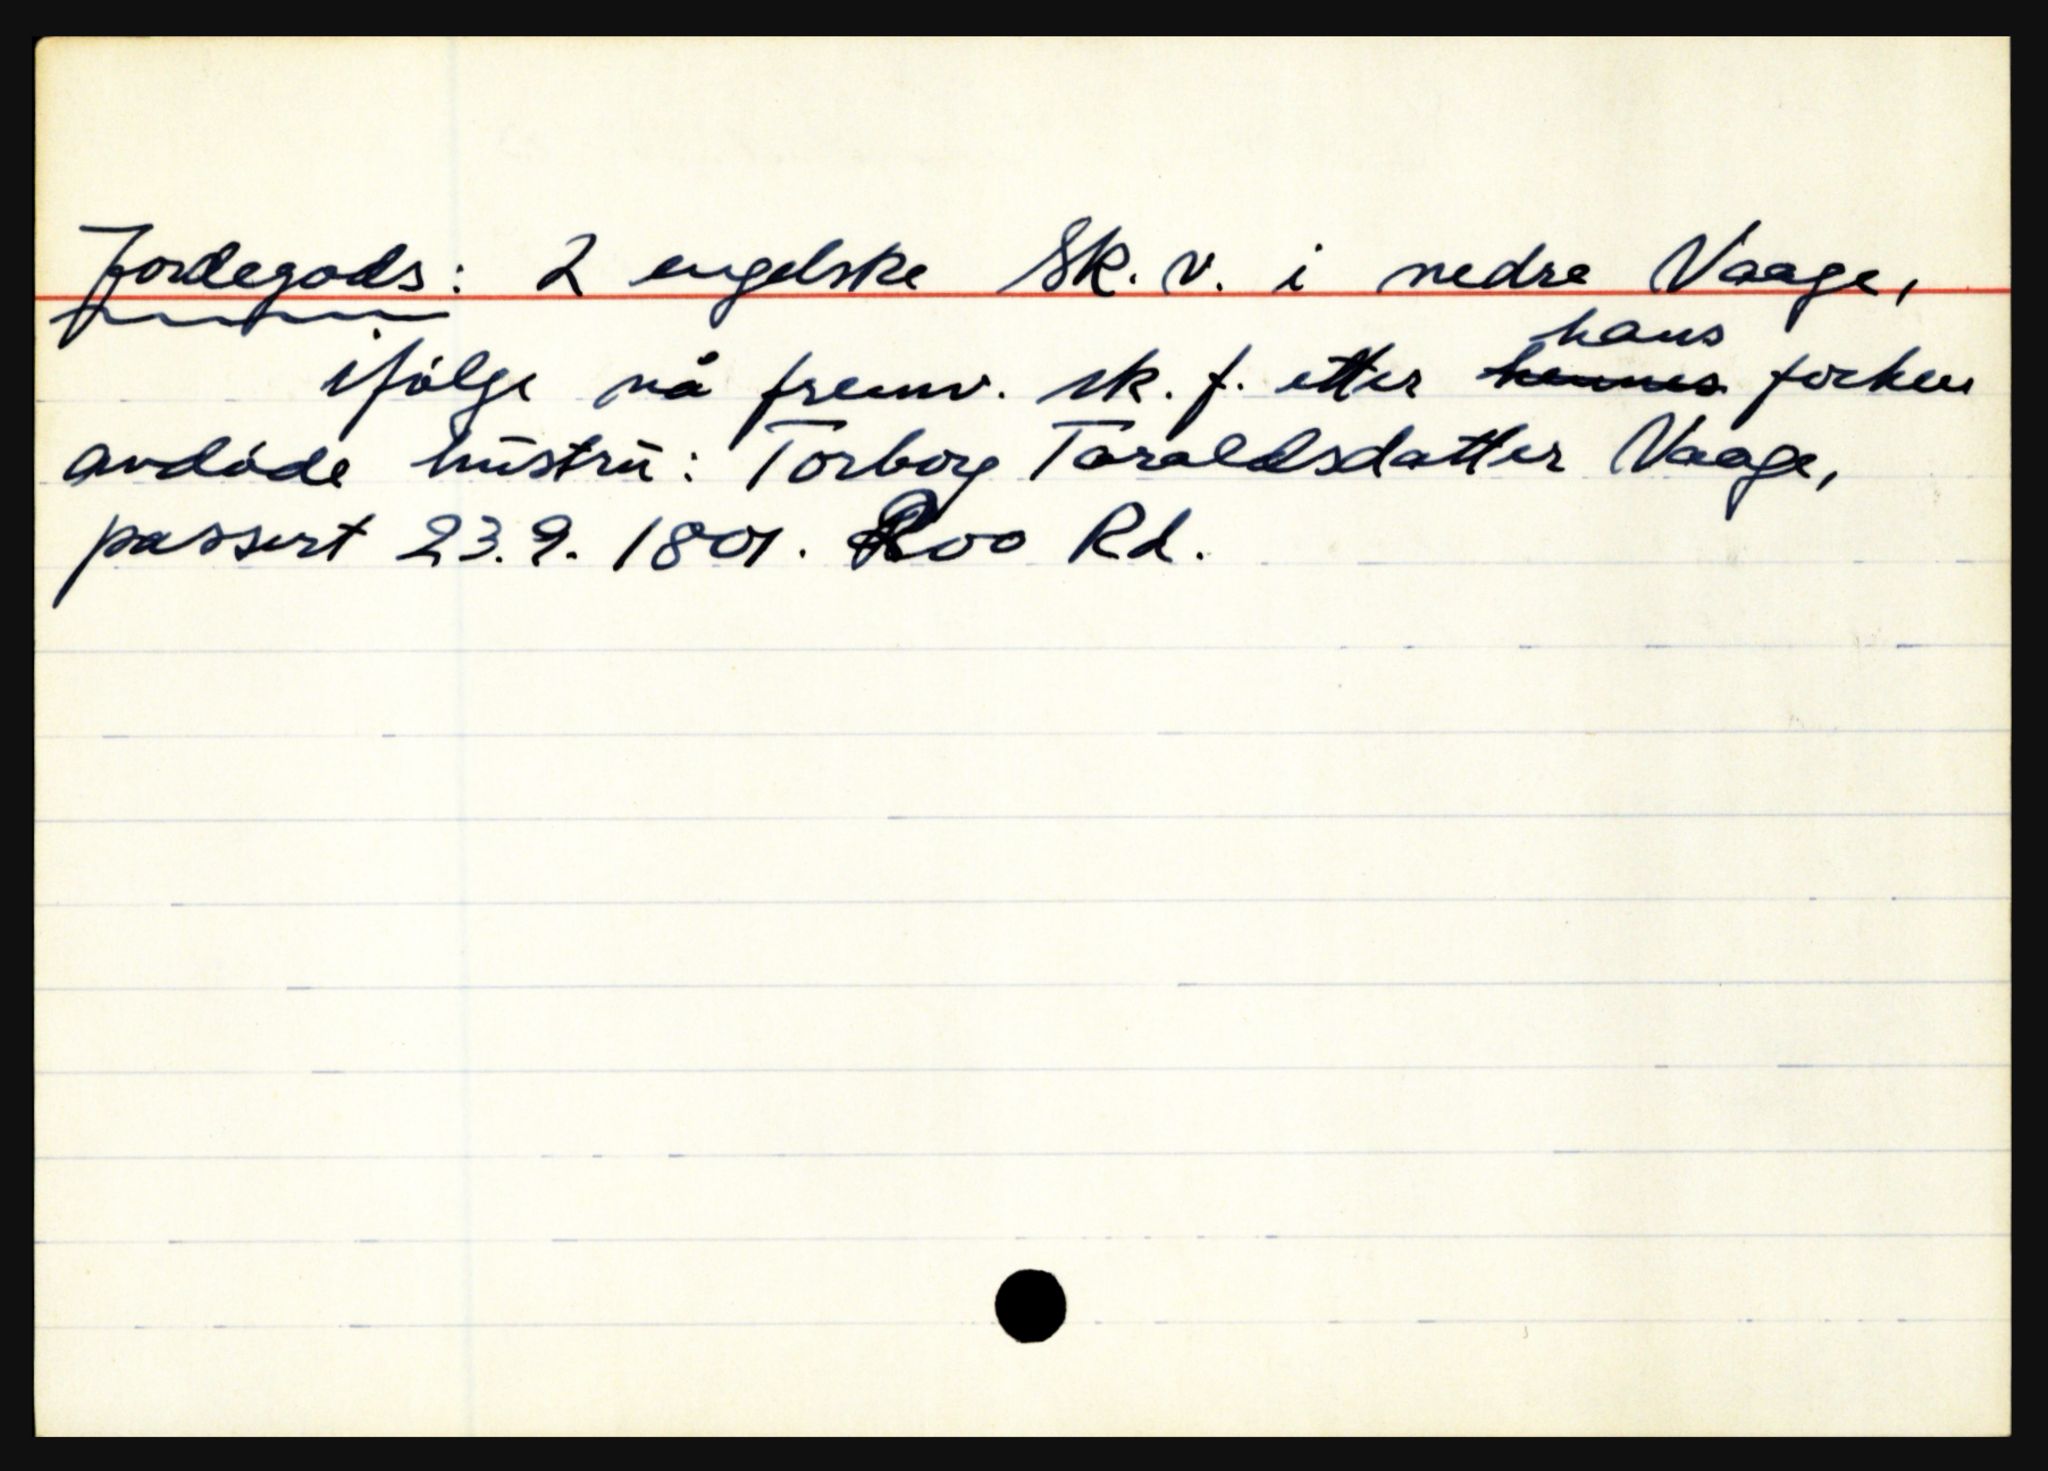 Jordegods: 2 engelske Sk. v. i nedre Vaage,
hans
ifölge nå fremv. sk. f. etter hennes forhen
avdöde hustru: Torborg Taraldsdatter Vaage,
passert 23.9. 1801. 200 Rd.